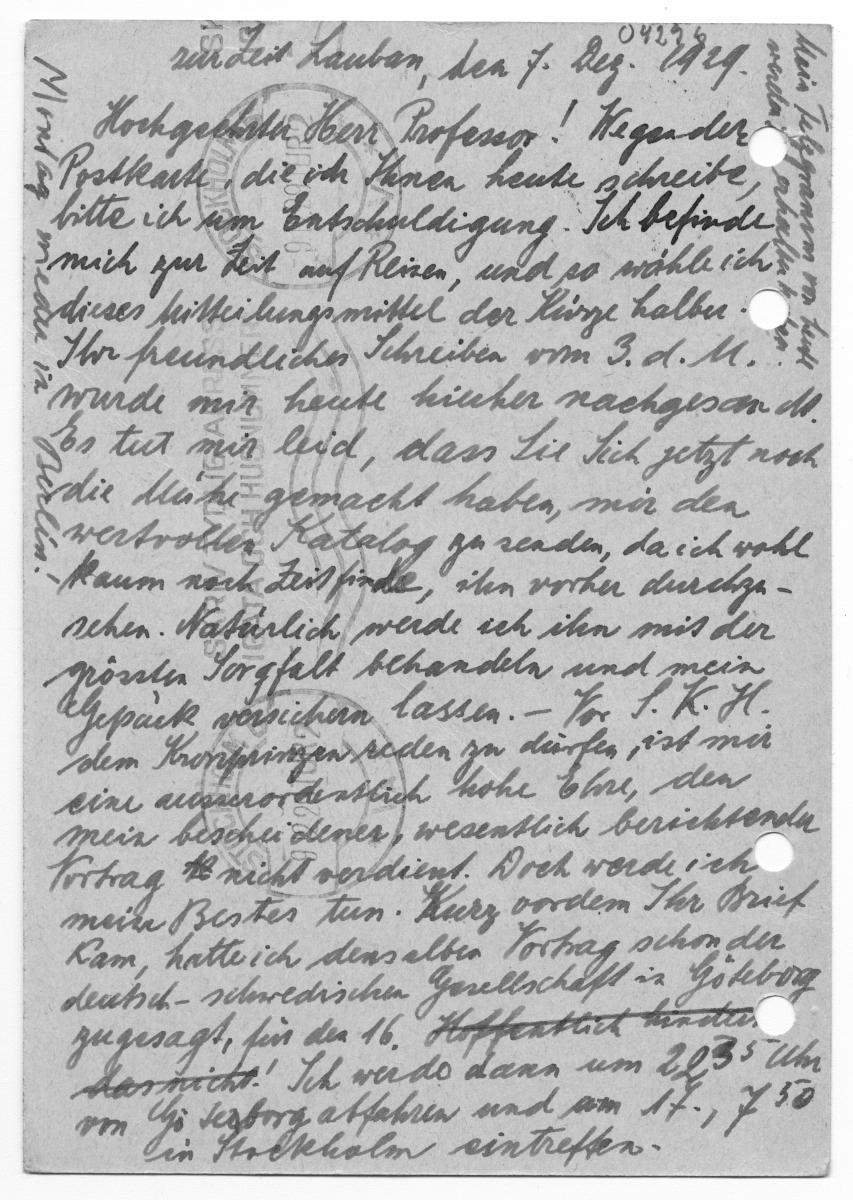 04226
zur Zeit Lauban, den 7. Dez. 1929.
Hochgeehrter Herr Professor! Wegen der
Postkarte, die ich Ihnen heute schreibe,
bitte ich um Entschuldigung. Ich befinde
mich zur Zeit auf Reisen, und so wähle ich
dieses Mitteilungsmittel der Kürze halber.
Ihr freundliches Schreiben vom 3. d. M.
wurde mir heute hierher nachgesandt.
Es tut mir leid, dass Sie Sich jetzt noch
die Mühe gemacht haben, mir den
wertvollen Katalog zu senden, da ich wohl
kaum noch Zeit finde, ihn vorher durchzu-
sehen. Natürlich werde ich ihn mit der
grössten Sorgfalt behandeln und mein
Gepäck versichern lassen. – Vor S. K. H.
dem Kronprinzen reden zu dürfen, ist mir
eine ausserordentlich hohe Ehre, den
mein bescheidener, wesentlich berichtender
Vortrag nicht verdient. Doch werde ich
mein Bestes tun. Kurz vordem Ihr Brief
kam, hatte ich denselben Vortrag schon der
deutsch-schwedischen Gesellschaft in Göteborg
zugesagt, für den 16. Hoffentlich hindert
das nicht! Ich werde dann um 22 35 Uhr
von Göteborg abfahren und am 17., 7 50
in Stockholm eintreffen.
Montag wieder in Berlin!
Mein Telegramm von heute
werden erhalten haben